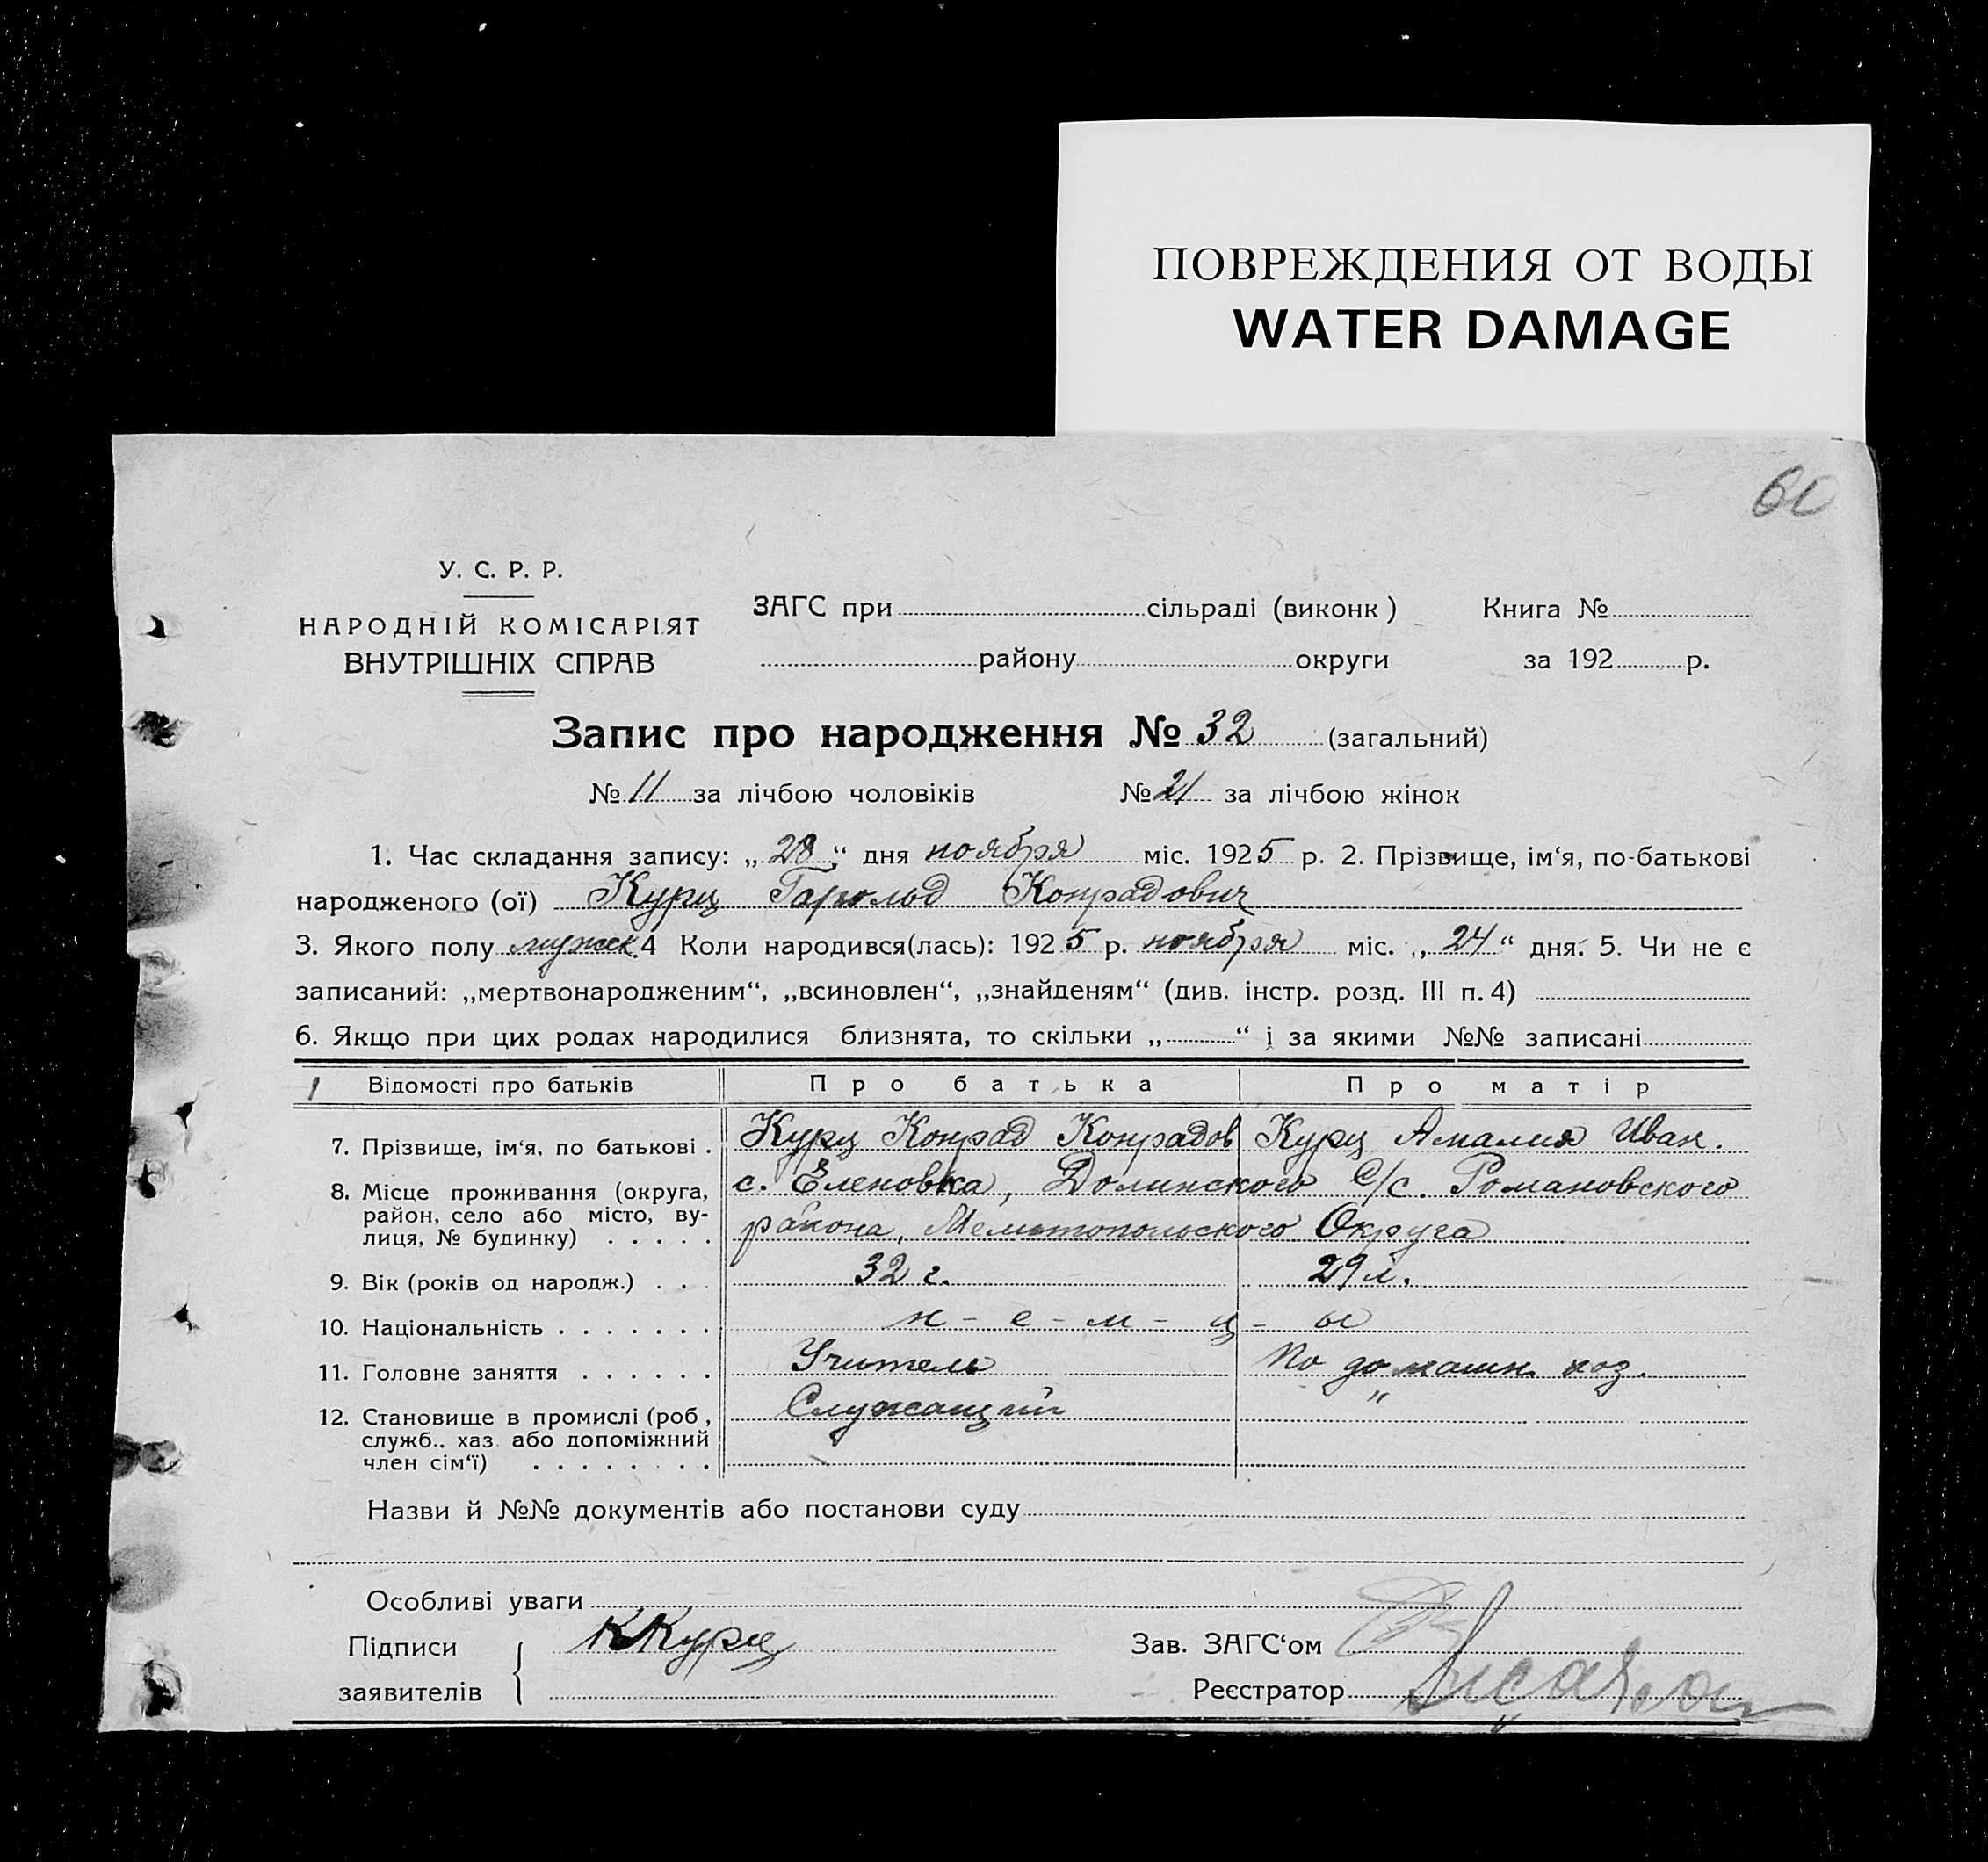 ПОВРЕЖДЕНИЯ ОТ ВОДЫ
WATER DAMAGE
У. С. Р. Р.
НАРОДНІЙ КОМІСАРІЯТ
ВНУТРІШНІХ СПРАВ
ЗАГС при сільраді (виконк) Книга №
району округи за 192 р.
Запис про народження № 32 (загальний)
№ 11 за лічбою чоловіків № 21 за лічбою жінок
1. Час складання запису: „28“ дня ноября міс. 1925 р. 2. Прізвище, ім‘я, по-батькові
народженого (ої) Курц Гарольд Конрадович
3. Якого полу мужск. 4 Коли народився(лась): 1925 р. ноября міс. „24“ дня. 5. Чи не є
записаний: „мертвонародженим“, „всиновлен“, „знайденям“ (див. інстр. розд. III п. 4)
6. Якщо при цих родах народилися близнята, то скільки „ “ і за якими №№ записані
Відомості про батьків Про батька Про матір
7. Прізвище, ім‘я, по батькові . Курц Конрад Конрадов Курц Амалия Иван.
8. Місце проживання (округа, с. Еленовка, Долинского с/с. Романовского
район, село або місто, ву-
лиця, № будинку) . . . . . района, Мелитопольского Округа
9. Вік (років од народж.) . . . 32 г. 29 л.
10. Національність . . . . . . . н - е - м - ц - ы
11. Головне заняття . . . . . . Учитель По домашн. хоз.
12. Становище в промислі (роб., Служащий "
служб.. хаз або допоміжний
член сім‘ї) . . . . . . . .
Назви й №№ документів або постанови суду
Особливі уваги
Підписи ККурц Зав. ЗАГС‘ом
заявителів Реєстратор